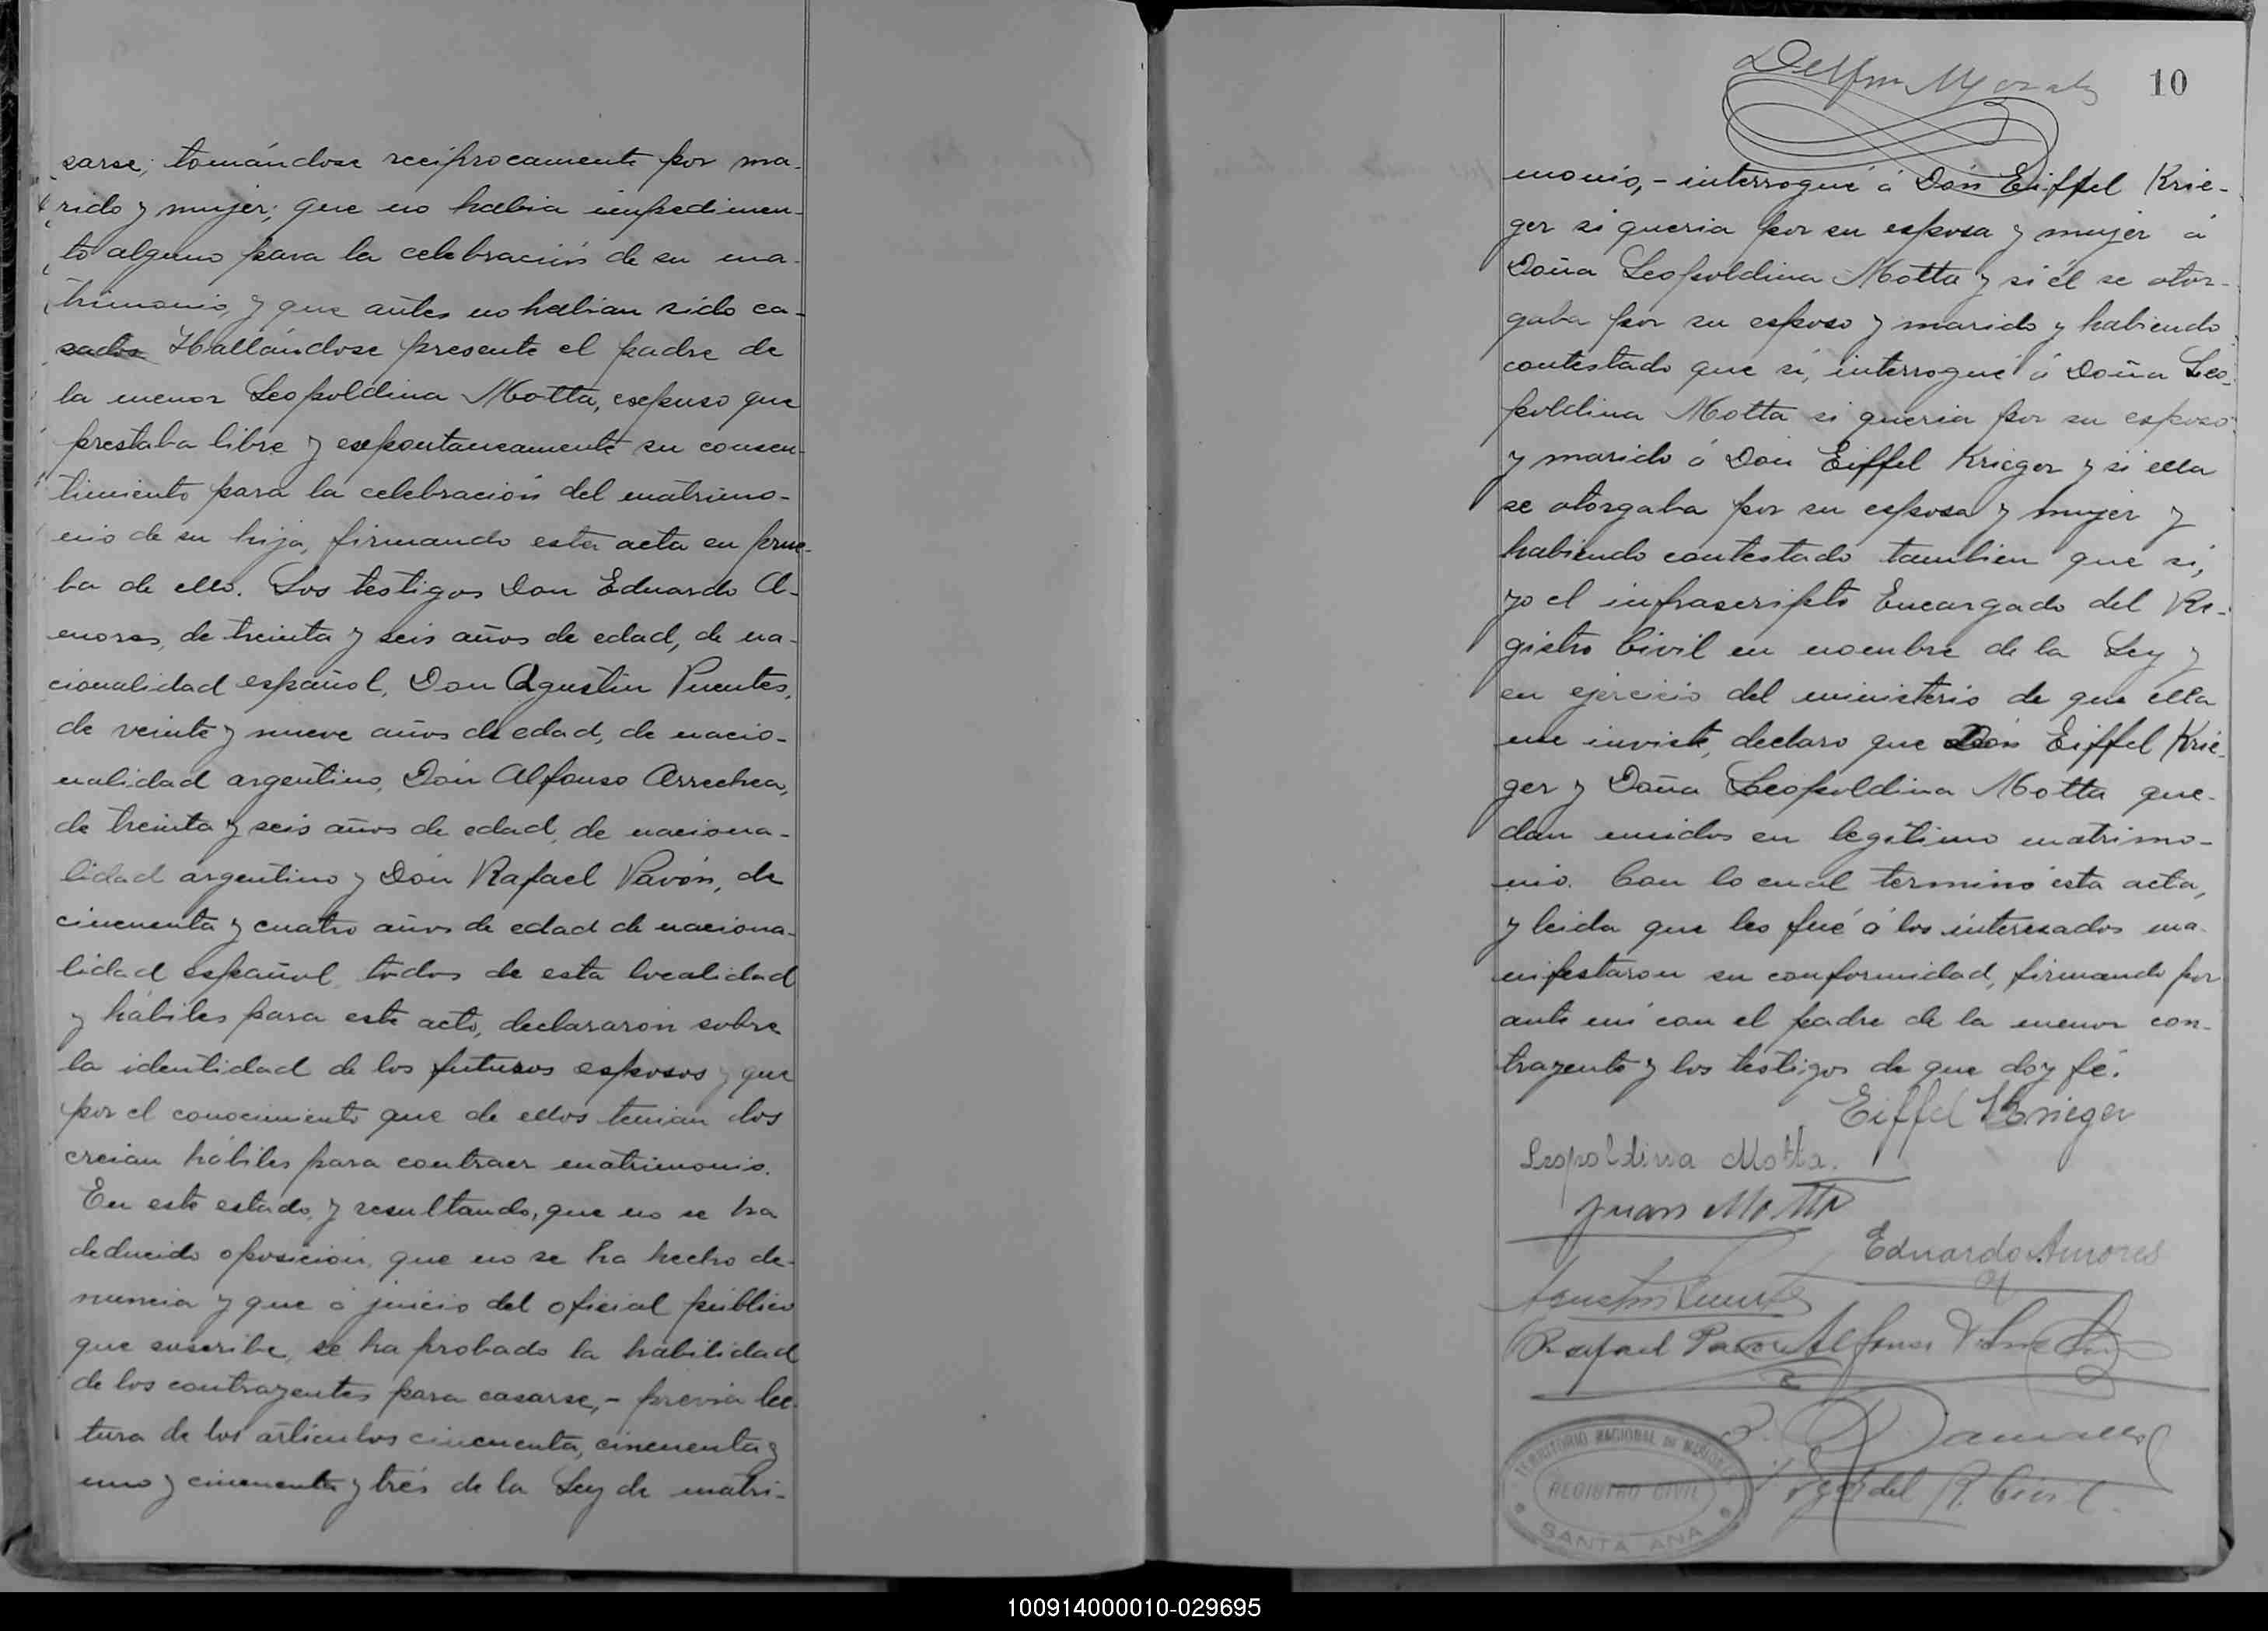 sarse; tomándose recíprocamente por ma-
rido y mujer; que no habia impedimen-
to alguno para la celebración de su ma-
trimonio, y que antes no habian sido ca-
sados Hallándose presente el padre de
la menor Leopoldina Motta, expuso que
prestaba libre y expontaneamente su consen-
timiento para la celebración del matrimo-
nio de su hija, firmando esta acta en prue-
ba de ello. Los testigos Don Eduardo A-
mores, de treinta y seis años de edad, de na-
cionalidad español, Don Agustin Puentes,
de veinte y nueve años de edad, de nacio-
nalidad argentino, Don Alfonso Arrechea,
de treinta y seis años de edad, de naciona-
lidad argentino y Don Rafael Pavón, de
cincuenta y cuatro años de edad de naciona-
lidad español, todos de esta localidad
y hábiles para este acto, declararon sobre
la identidad de los futuros esposos y que
por el conocimiento que de ellos tenian los
creian hábiles para contraer matrimonio.
En este estado y resultando, que no se ha
deducido oposición, que no se ha hecho de-
nuncia y que á juicio del oficial público
que suscribe, se ha probado la habilidad
de los contrayentes para casarse, - previa lec-
tura de los artículos cincuenta, cincuenta y
uno y cincuenta y trés de la Ley de matri-
10
monio, - interrogué á Don Eiffel Krie-
ger si queria por su esposa y mujer á
Doña Leopoldina Motta y si él se otor-
gaba por su esposo y marido y habiendo
contestado que si, interrogué á Doña Leo-
poldina Motta si queria por su esposo
y marido á Don Eiffel Krieger y si ella
se otorgaba por su esposa y mujer y
habiendo contestado tambien que si,
yo el infrascripto Encargado del Re-
gistro Civil en nombre de la Ley y
en ejercicio del ministerio de que ella
me inviste, declaro que Don Eiffel Krie-
ger y Doña Leopoldina Motta que-
dan unidos en legítimo matrimo-
nio. Con lo cual terminó esta acta,
y leida que les fué á los interesados ma-
nifestaron su conformidad, firmando por
ante mi con el padre de la menor con-
trayente y los testigos de que doy fé.
Eiffel Krieger
Leopoldina Motta.
Juan Motta
Eduardo Amores
Agustin Puentes
Rafael Pavon Alfonso
del R. Civil
TERRITORIO NACIONAL DE MISIONES
REGISTRO CIVIL
SANTA ANA
100914000010-029695